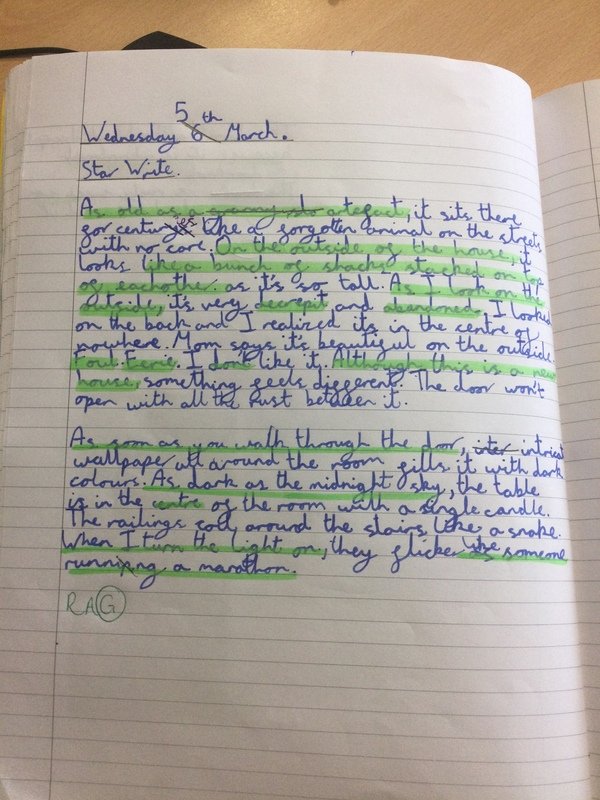 Wednesday 5th 6 March.
Star Write.
As old as a artefact, it sits there
for centuries like a forgotten animal on the streets
with no care. On the outside of the house, it
looks like a bunch of shacks stacked on top
of eachother as it's so tall. As I look on the
outside, it's very decrepit and abandoned, I looked
on the back and I realized its in the centre of
nowhere. Mom says it's beautiful on the outside.
Foul. Eerie. I don't like it. Although this is a new
house, something feels different. The door won't
open with all the rust between it.
As soon as you walk through the door, inter intricat
wallpaper all around the room fills it with dark
colours. As dark as the midnight sky, the table
is in the centre of the room with a single candle.
The railings coil around the stairs like a snake.
When I turn the light on, they flicker like someone
running a marathon.
R A G